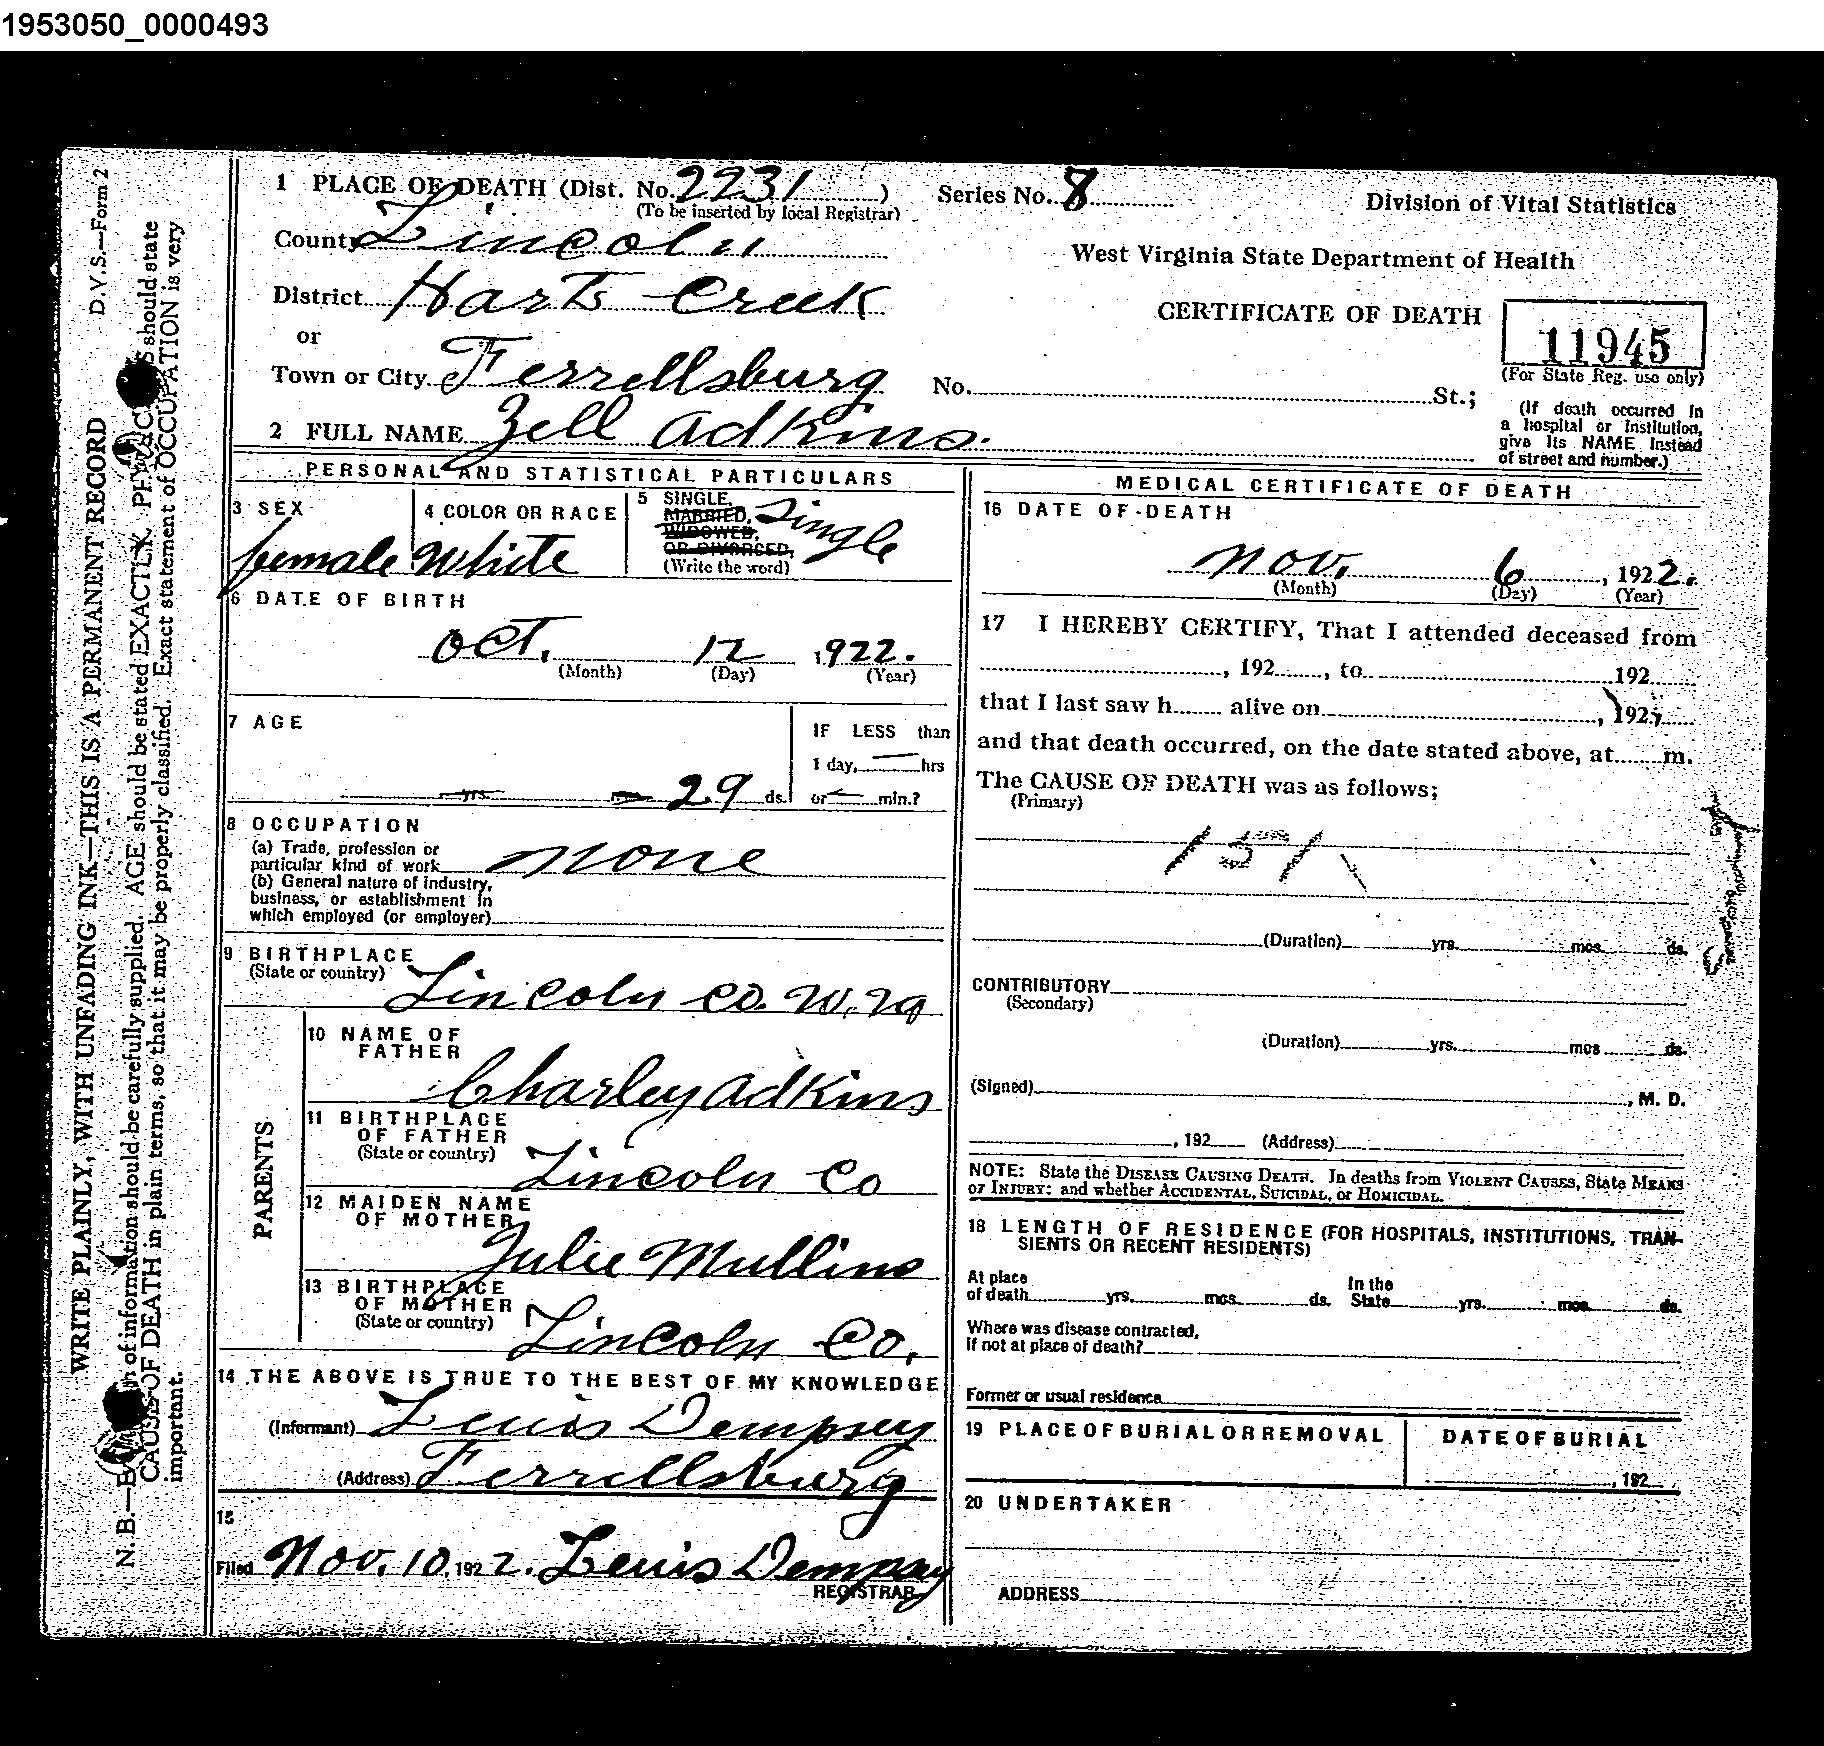 1953050_0000493
D.V.S.—Form 2
WRITE PLAINLY, WITH UNFADING INK—THIS IS A PERMANENT RECORD
N. B.— of information should be carefully supplied. AGE should be stated EXACTLY. should state
CAUSE OF DEATH in plain terms, so that it may be properly classified. Exact statement of OCCUPATION is very
important.
1 PLACE OF DEATH (Dist. No. 2231 )
(To be inserted by local Registrar)
Series No. 8
Division of Vital Statistics
County Lincoln
West Virginia State Department of Health
District Harts Creek
CERTIFICATE OF DEATH
11945
(For State Reg. use only)
or
Town or City Ferrellsburg No. St.;
(If death occurred in
a hospital or Institution,
give its NAME instead
of street and number.)
2 FULL NAME Zell Adkins.
PERSONAL AND STATISTICAL PARTICULARS
3 SEX
female
4 COLOR OR RACE
White
5 SINGLE,
MARRIED,
WIDOWED,
OR DIVORCED,
(Write the word)
Single
6 DATE OF BIRTH
Oct. 12 1922.
(Month) (Day) (Year)
7 AGE
yrs. 29 ds.
IF LESS than
1 day, hrs
or min.?
8 OCCUPATION
(a) Trade, profession or
particular kind of work none
(b) General nature of industry,
business, or establishment in
which employed (or employer)
9 BIRTHPLACE
(State or country) Lincoln Co. W. Va
PARENTS
10 NAME OF
FATHER
Charley Adkins
11 BIRTHPLACE
OF FATHER
(State or country) Lincoln Co
12 MAIDEN NAME
OF MOTHER
Julie Mullins
13 BIRTHPLACE
OF MOTHER
(State or country) Lincoln Co.
14 THE ABOVE IS TRUE TO THE BEST OF MY KNOWLEDGE
(Informant) Lewis Dempsey
(Address) Ferrellsburg
15
Filed Nov. 10, 1922. Lewis Dempsey
REGISTRAR
MEDICAL CERTIFICATE OF DEATH
16 DATE OF DEATH
Nov. 6, 1922.
(Month) (Day) (Year)
17 I HEREBY CERTIFY, That I attended deceased from
, 192 , to 192
that I last saw h alive on , 192
and that death occurred, on the date stated above, at m.
The CAUSE OF DEATH was as follows;
(Primary)
151
(Duration) yrs. mos. ds.
CONTRIBUTORY
(Secondary)
(Duration) yrs. mos ds.
(Signed) , M. D.
, 192 (Address)
NOTE: State the DISEASE CAUSING DEATH. In deaths from VIOLENT CAUSES, State MEANS
OF INJURY; and whether ACCIDENTAL, SUICIDAL, or HOMICIDAL.
18 LENGTH OF RESIDENCE (FOR HOSPITALS, INSTITUTIONS, TRAN-
SIENTS OR RECENT RESIDENTS)
At place
of death yrs. mos. ds.
In the
State yrs. mos. ds.
Where was disease contracted,
if not at place of death?
Former or usual residence
19 PLACE OF BURIAL OR REMOVAL
DATE OF BURIAL
, 192
20 UNDERTAKER
ADDRESS